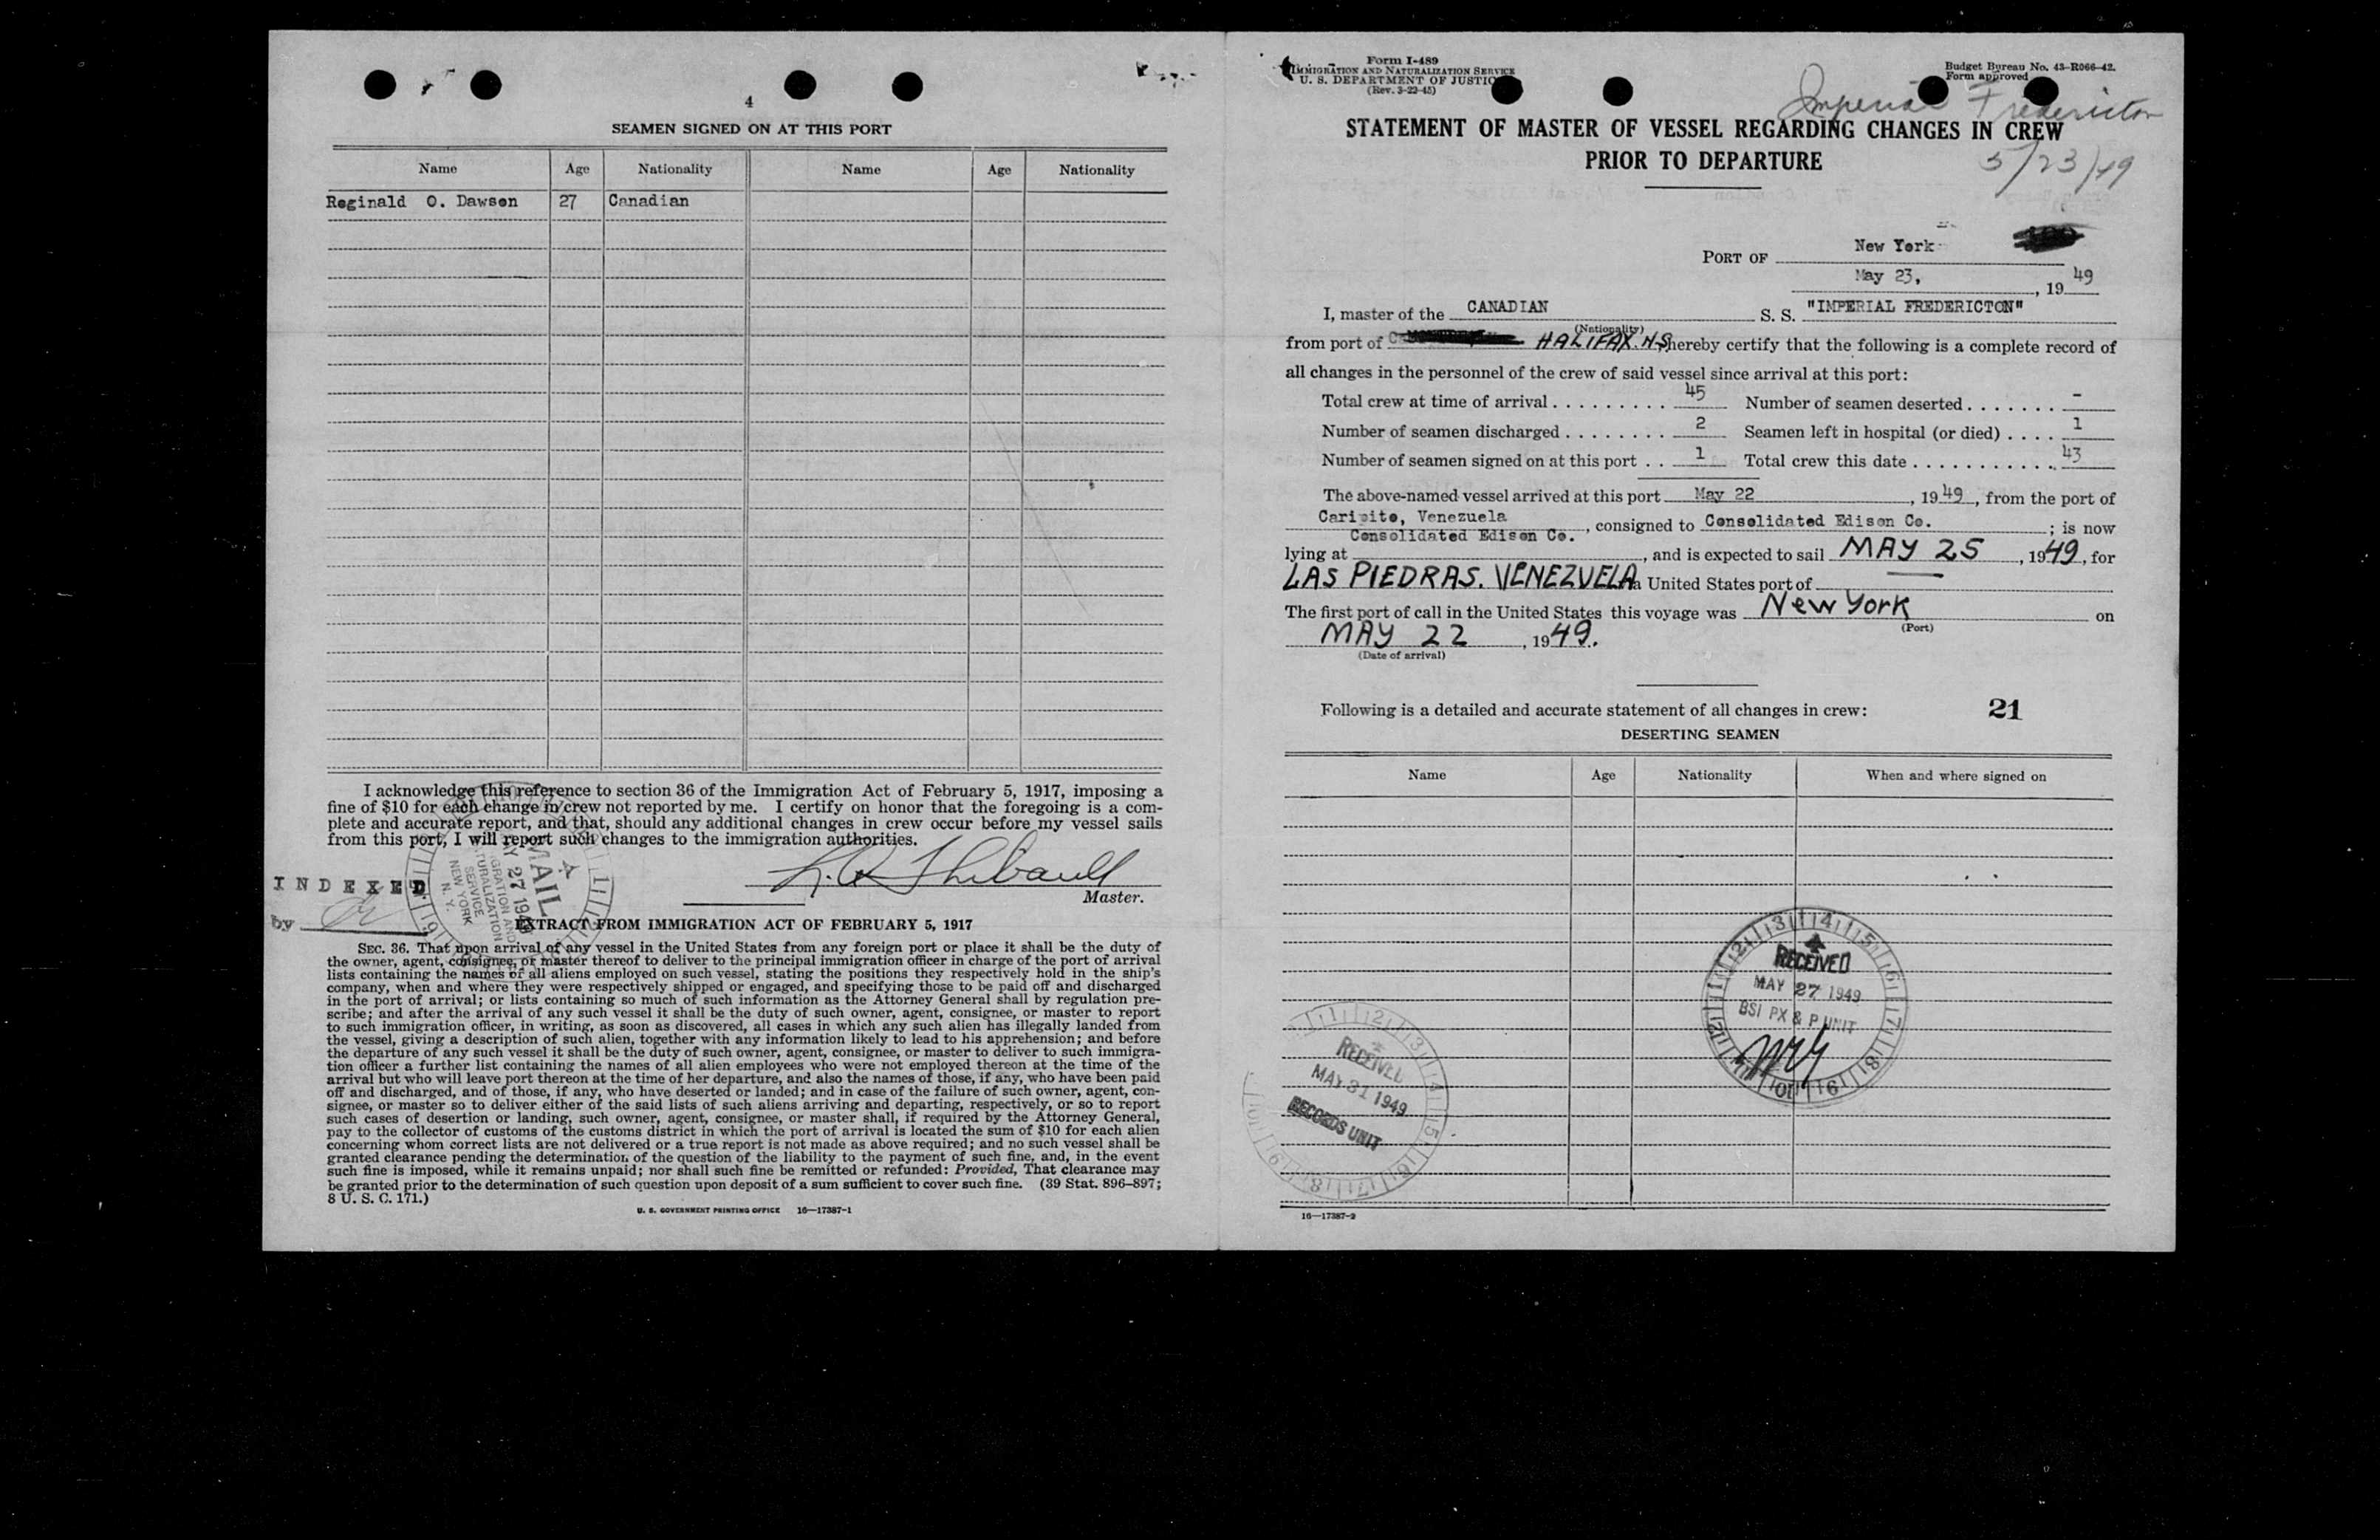 4
SEAMEN SIGNED ON AT THIS PORT
Name Age Nationality Name Age Nationality
Reginald O. Dawson 27 Canadian
I acknowledge this reference to section 36 of the Immigration Act of February 5, 1917, imposing a
fine of $10 for each change in crew not reported by me. I certify on honor that the foregoing is a com-
plete and accurate report, and that, should any additional changes in crew occur before my vessel sails
from this port, I will report such changes to the immigration authorities.
Thibault
Master.
INDEXED
by
MAIL
27 19
SERVICE
NEW YORK
N. Y.
EXTRACT FROM IMMIGRATION ACT OF FEBRUARY 5, 1917
SEC. 36. That upon arrival of any vessel in the United States from any foreign port or place it shall be the duty of
the owner, agent, consignee, or master thereof to deliver to the principal immigration officer in charge of the port of arrival
lists containing the names of all aliens employed on such vessel, stating the positions they respectively hold in the ship's
company, when and where they were respectively shipped or engaged, and specifying those to be paid off and discharged
in the port of arrival; or lists containing so much of such information as the Attorney General shall by regulation pre-
scribe; and after the arrival of any such vessel it shall be the duty of such owner, agent, consignee, or master to report
to such immigration officer, in writing, as soon as discovered, all cases in which any such alien has illegally landed from
the vessel, giving a description of such alien, together with any information likely to lead to his apprehension; and before
the departure of any such vessel it shall be the duty of such owner, agent, consignee, or master to deliver to such immigra-
tion officer a further list containing the names of all alien employees who were not employed thereon at the time of the
arrival but who will leave port thereon at the time of her departure, and also the names of those, if any, who have been paid
off and discharged, and of those, if any, who have deserted or landed; and in case of the failure of such owner, agent, con-
signee, or master so to deliver either of the said lists of such aliens arriving and departing, respectively, or so to report
such cases of desertion or landing, such owner, agent, consignee, or master shall, if required by the Attorney General,
pay to the collector of customs of the customs district in which the port of arrival is located the sum of $10 for each alien
concerning whom correct lists are not delivered or a true report is not made as above required; and no such vessel shall be
granted clearance pending the determination of the question of the liability to the payment of such fine, and, in the event
such fine is imposed, while it remains unpaid; nor shall such fine be remitted or refunded: Provided, That clearance may
be granted prior to the determination of such question upon deposit of a sum sufficient to cover such fine. (39 Stat. 896-897;
8 U. S. C. 171.)
U. S. GOVERNMENT PRINTING OFFICE 16—17387-1
Form I-489
IMMIGRATION AND NATURALIZATION SERVICE
U. S. DEPARTMENT OF JUSTICE
(Rev. 3-22-45)
Budget Bureau No. 43-R066-42.
Form approved
Imperial Fredericton
STATEMENT OF MASTER OF VESSEL REGARDING CHANGES IN CREW
PRIOR TO DEPARTURE
5/23/49
PORT OF New York
May 23, , 19 49
I, master of the CANADIAN S. S. "IMPERIAL FREDERICTON"
(Nationality)
from port of HALIFAX. N.S hereby certify that the following is a complete record of
all changes in the personnel of the crew of said vessel since arrival at this port:
Total crew at time of arrival . . . . . . . . . 45 Number of seamen deserted . . . . . . . -
Number of seamen discharged . . . . . . . . 2 Seamen left in hospital (or died) . . . . 1
Number of seamen signed on at this port . . 1 Total crew this date . . . . . . . . . . . . 43
The above-named vessel arrived at this port May 22 , 19 49, from the port of
Caripito, Venezuela , consigned to Consolidated Edison Co. ; is now
lying at Consolidated Edison Co. , and is expected to sail MAY 25 , 19 49, for
LAS PIEDRAS. VENEZUELA a United States port of —
The first port of call in the United States this voyage was New York on
(Port)
MAY 22 , 19 49.
(Date of arrival)
Following is a detailed and accurate statement of all changes in crew: 21
DESERTING SEAMEN
Name Age Nationality When and where signed on
RECEIVED
MAY 27 1949
BSI PX & P UNIT
RECEIVED
MAY 31 1949
RECORDS UNIT
16—17387-2